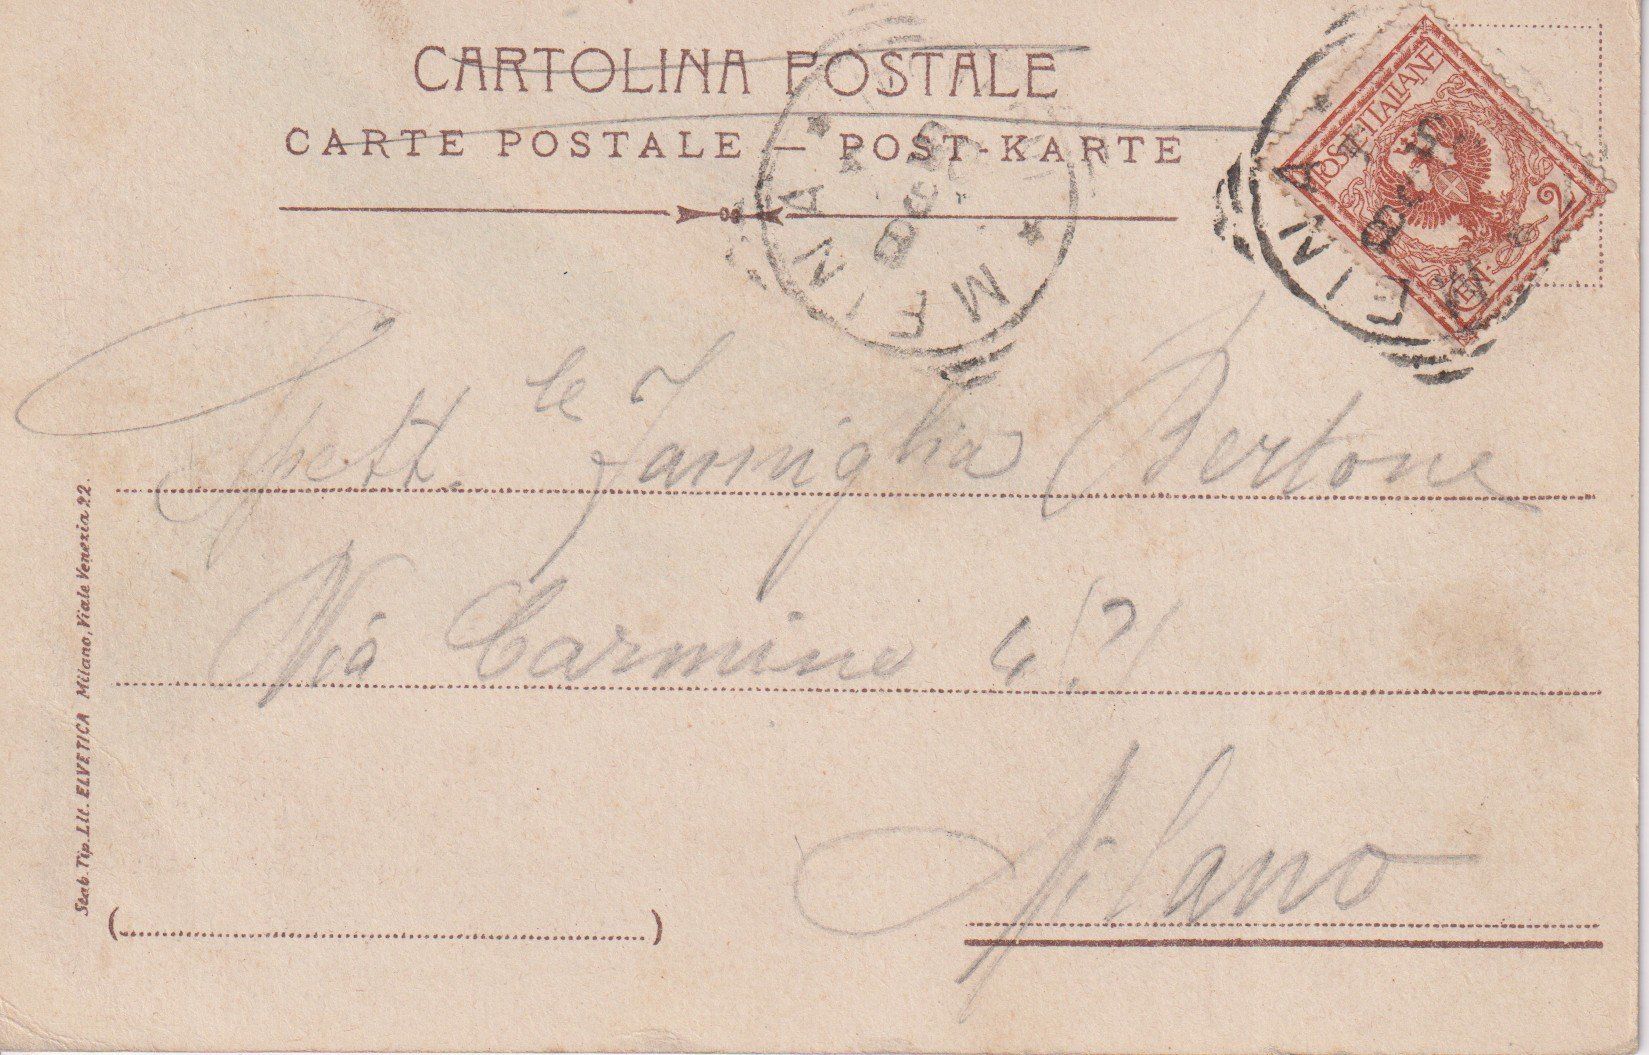 CARTOLINA POSTALE
CARTE POSTALE — POST-KARTE
POSTE ITALIANE
2
CENT.
MFINA
EINA
Spett.le Famiglia Bertone
Via Carmine
Milano
Stab. Tip. Lit. ELVETICA Milano, Viale Venezia 22.
( )